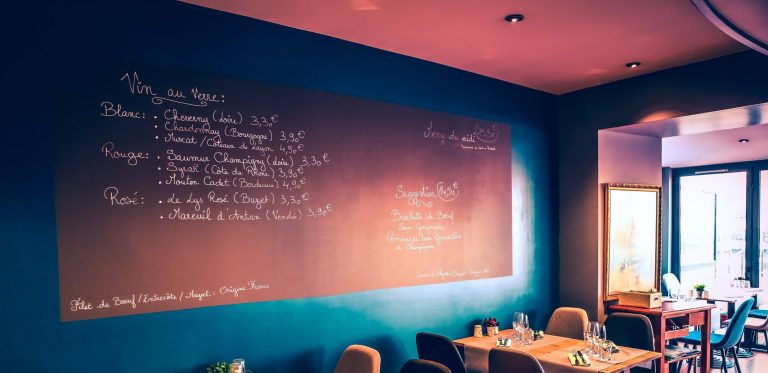 Vin au verre:
Blanc: • Cheverny (Loire) 3,30€
• Chardonnay (Bourgogne) 3,90€
• Muscat / Coteaux du Layon 4,90€
Rouge: • Saumur Champigny (Loire) 3,30€
• Syrah (Côte du Rhône) 3,90€
• Mouton Cadet (Bordeaux) 4,90€
Rosé: • Le Lys Rosé (Buzet) 3,30€
• Mareuil d'Antan (Vendée) 3,90€
Filet de Bœuf / Entrecôte / Onglet: Origine France
Menu du midi
Suggestion 14,50€
Brochette de Bœuf